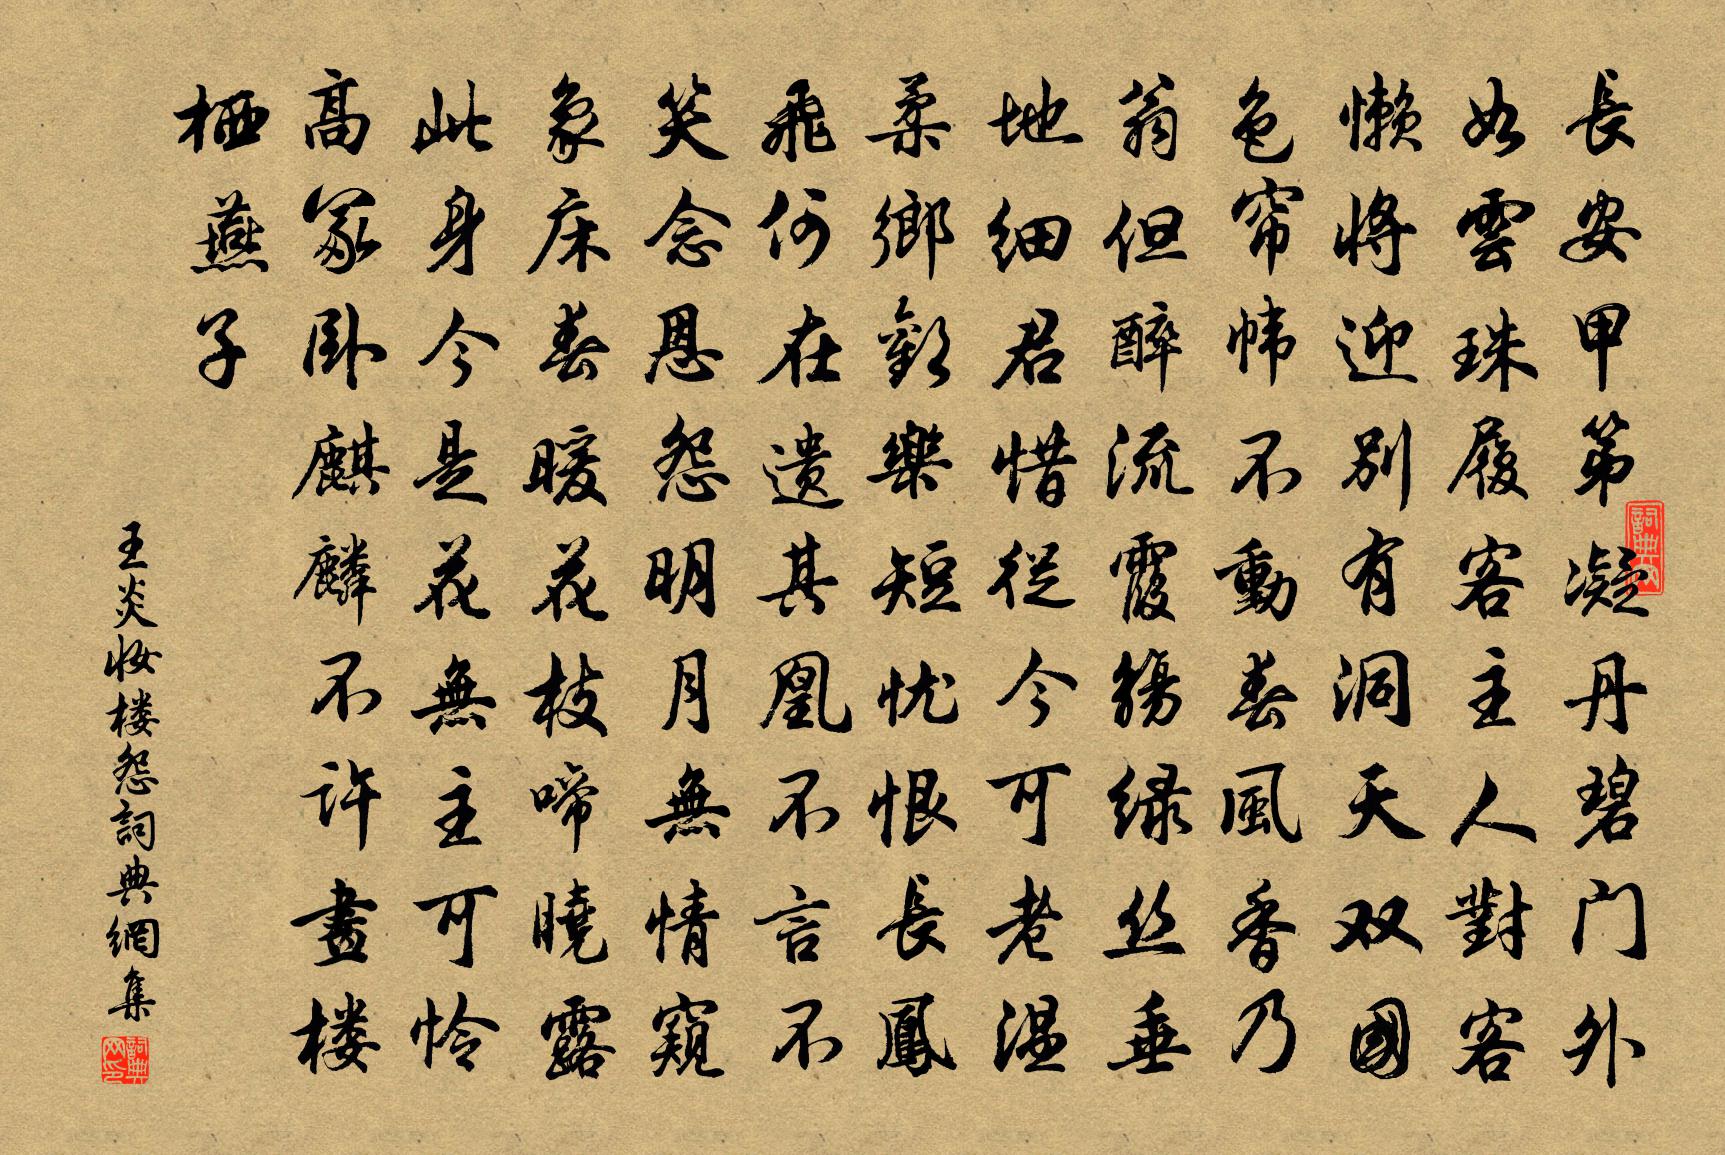 長安甲第凝丹碧门外
如雲珠履客主人對客
懒将迎别有洞天双國
色帘帏不動春風香乃
翁但醉流霞觞绿丝垂
地细君惜從今可老温
柔鄉歡樂短忧恨長鳳
飛何在遗其凰不言不
笑念恩怨明月無情窺
象床春暖花枝啼曉露
此身今是花無主可怜
高冢卧麒麟不许畫楼
栖燕子
王炎妆楼怨詞典網集
詞典网
詞典网印